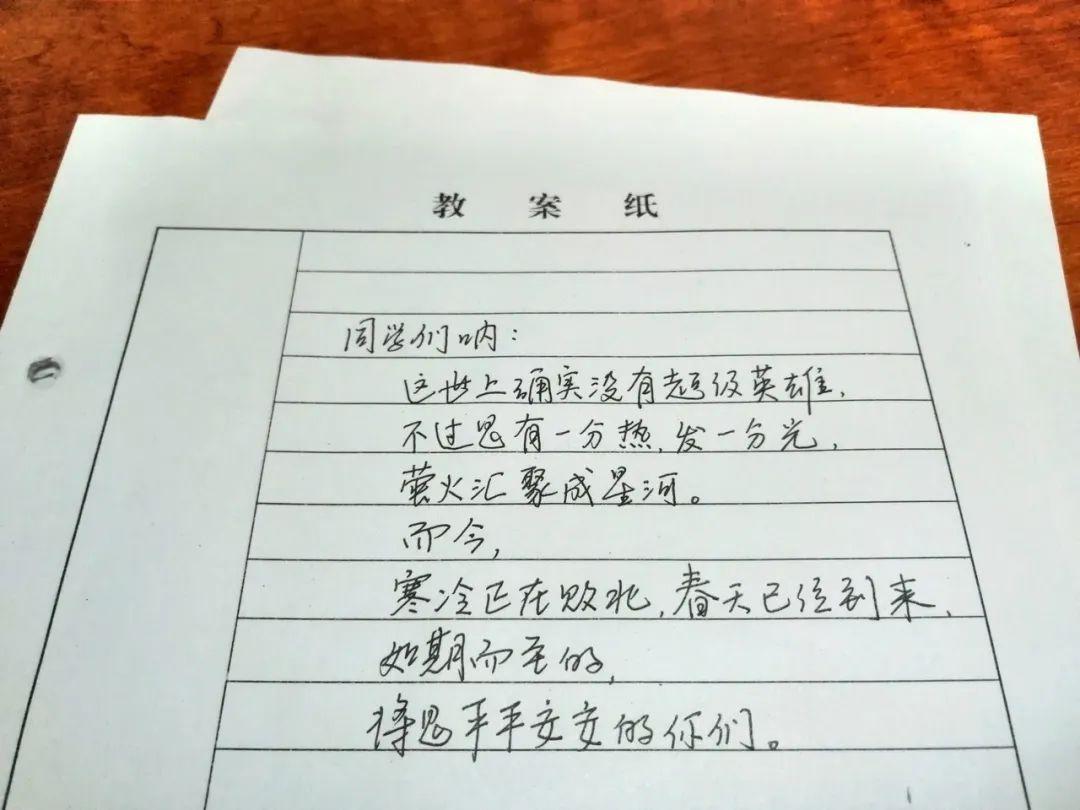 教案纸
同学们呐：
这世上确实没有超级英雄，
不过是有一分热，发一分光，
萤火汇聚成星河。
而今，
寒冷正在败北，春天已经到来，
如期而至的，
将是平平安安的你们。